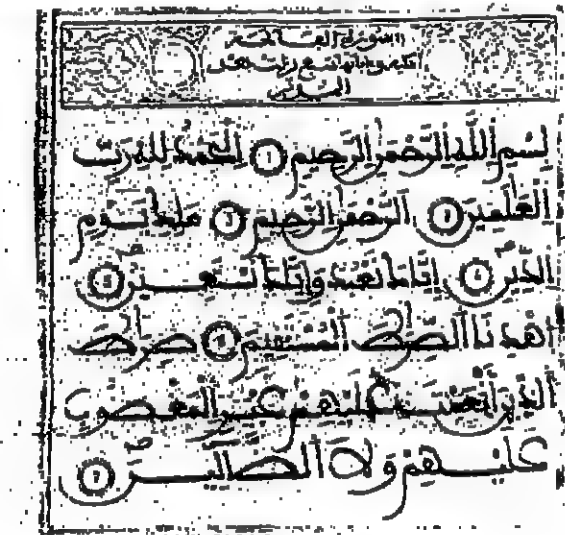 (1) سورة الفاتحة
مكية وءاياتها سبع نزلت بعد
المدثر
بِسْمِ اللَّهِ الرَّحْمَٰنِ الرَّحِيمِ (1) الْحَمْدُ لِلَّهِ رَبِّ
الْعَٰلَمِينَ (2) الرَّحْمَٰنِ الرَّحِيمِ (3) مَٰلِكِ يَوْمِ
الدِّينِ (4) إِيَّاكَ نَعْبُدُ وَإِيَّاكَ نَسْتَعِينُ (5)
اهْدِنَا الصِّرَٰطَ الْمُسْتَقِيمَ (6) صِرَٰطَ
الَّذِينَ أَنْعَمْتَ عَلَيْهِمْ غَيْرِ الْمَغْضُوبِ
عَلَيْهِمْ وَلَا الضَّآلِّينَ (7)